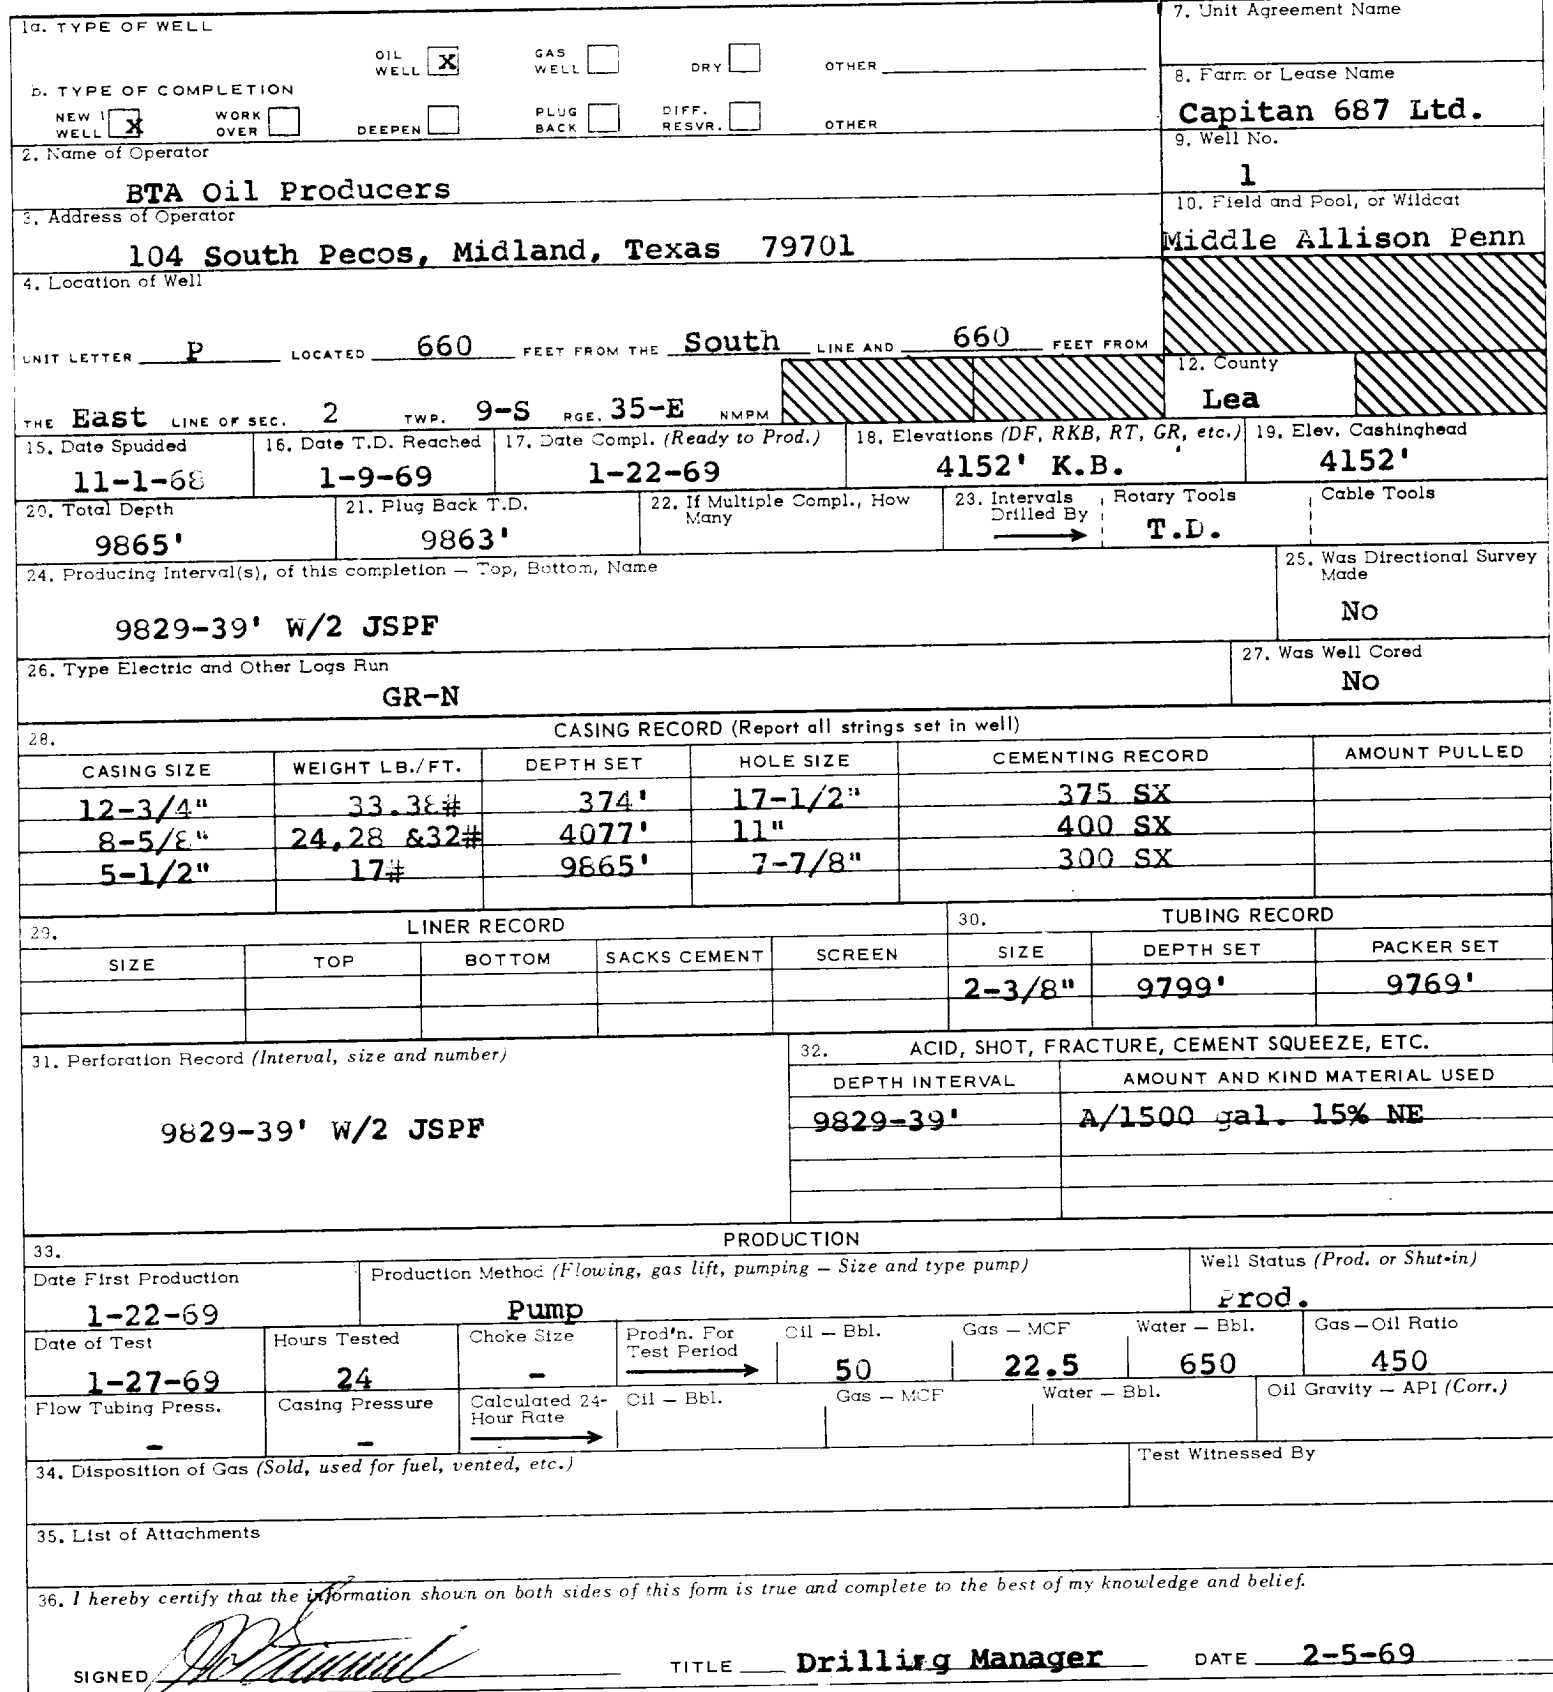 1a. TYPE OF WELL
OIL WELL X GAS WELL DRY OTHER
b. TYPE OF COMPLETION
NEW WELL X WORK OVER DEEPEN PLUG BACK DIFF. RESVR. OTHER
7. Unit Agreement Name
8. Farm or Lease Name
Capitan 687 Ltd.
2. Name of Operator
BTA Oil Producers
9. Well No.
1
3. Address of Operator
104 South Pecos, Midland, Texas 79701
10. Field and Pool, or Wildcat
Middle Allison Penn
4. Location of Well
UNIT LETTER P LOCATED 660 FEET FROM THE South LINE AND 660 FEET FROM
THE East LINE OF SEC. 2 TWP. 9-S RGE. 35-E NMPM
12. County
Lea
15. Date Spudded
11-1-68
16. Date T.D. Reached
1-9-69
17. Date Compl. (Ready to Prod.)
1-22-69
18. Elevations (DF, RKB, RT, GR, etc.)
4152' K.B.
19. Elev. Cashinghead
4152'
20. Total Depth
9865'
21. Plug Back T.D.
9863'
22. If Multiple Compl., How
Many
23. Intervals
Drilled By
Rotary Tools
T.D.
Cable Tools
24. Producing Interval(s), of this completion — Top, Bottom, Name
9829-39' W/2 JSPF
25. Was Directional Survey
Made
No
26. Type Electric and Other Logs Run
GR-N
27. Was Well Cored
No
28. CASING RECORD (Report all strings set in well)
CASING SIZE WEIGHT LB./FT. DEPTH SET HOLE SIZE CEMENTING RECORD AMOUNT PULLED
12-3/4" 33.38# 374' 17-1/2" 375 SX
8-5/8" 24,28 &32# 4077' 11" 400 SX
5-1/2" 17# 9865' 7-7/8" 300 SX
29. LINER RECORD
SIZE TOP BOTTOM SACKS CEMENT SCREEN
30. TUBING RECORD
SIZE DEPTH SET PACKER SET
2-3/8" 9799' 9769'
31. Perforation Record (Interval, size and number)
9829-39' W/2 JSPF
32. ACID, SHOT, FRACTURE, CEMENT SQUEEZE, ETC.
DEPTH INTERVAL AMOUNT AND KIND MATERIAL USED
9829-39' A/1500 gal. 15% NE
33. PRODUCTION
Date First Production
1-22-69
Production Method (Flowing, gas lift, pumping — Size and type pump)
Pump
Well Status (Prod. or Shut-in)
Prod.
Date of Test
1-27-69
Hours Tested
24
Choke Size
-
Prod'n. For
Test Period
Oil — Bbl.
50
Gas — MCF
22.5
Water — Bbl.
650
Gas—Oil Ratio
450
Flow Tubing Press.
-
Casing Pressure
-
Calculated 24-
Hour Rate
Oil — Bbl.
Gas — MCF
Water — Bbl.
Oil Gravity — API (Corr.)
34. Disposition of Gas (Sold, used for fuel, vented, etc.)
Test Witnessed By
35. List of Attachments
36. I hereby certify that the information shown on both sides of this form is true and complete to the best of my knowledge and belief.
SIGNED TITLE Drilling Manager DATE 2-5-69